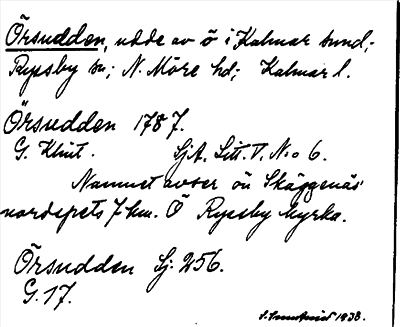 Örsudden, udde av ö i Kalmar sund;
Ryssby sn; N. Möre hd; Kalmar l.
Örsudden 1787.
G. Klint. SjA. Litt. V. No 6.
Namnet avser ön Skäggenäs'
nordspets 7 km. Ö Ryssby kyrka.
Örsudden Sj: 256.
G. 17.
1938.